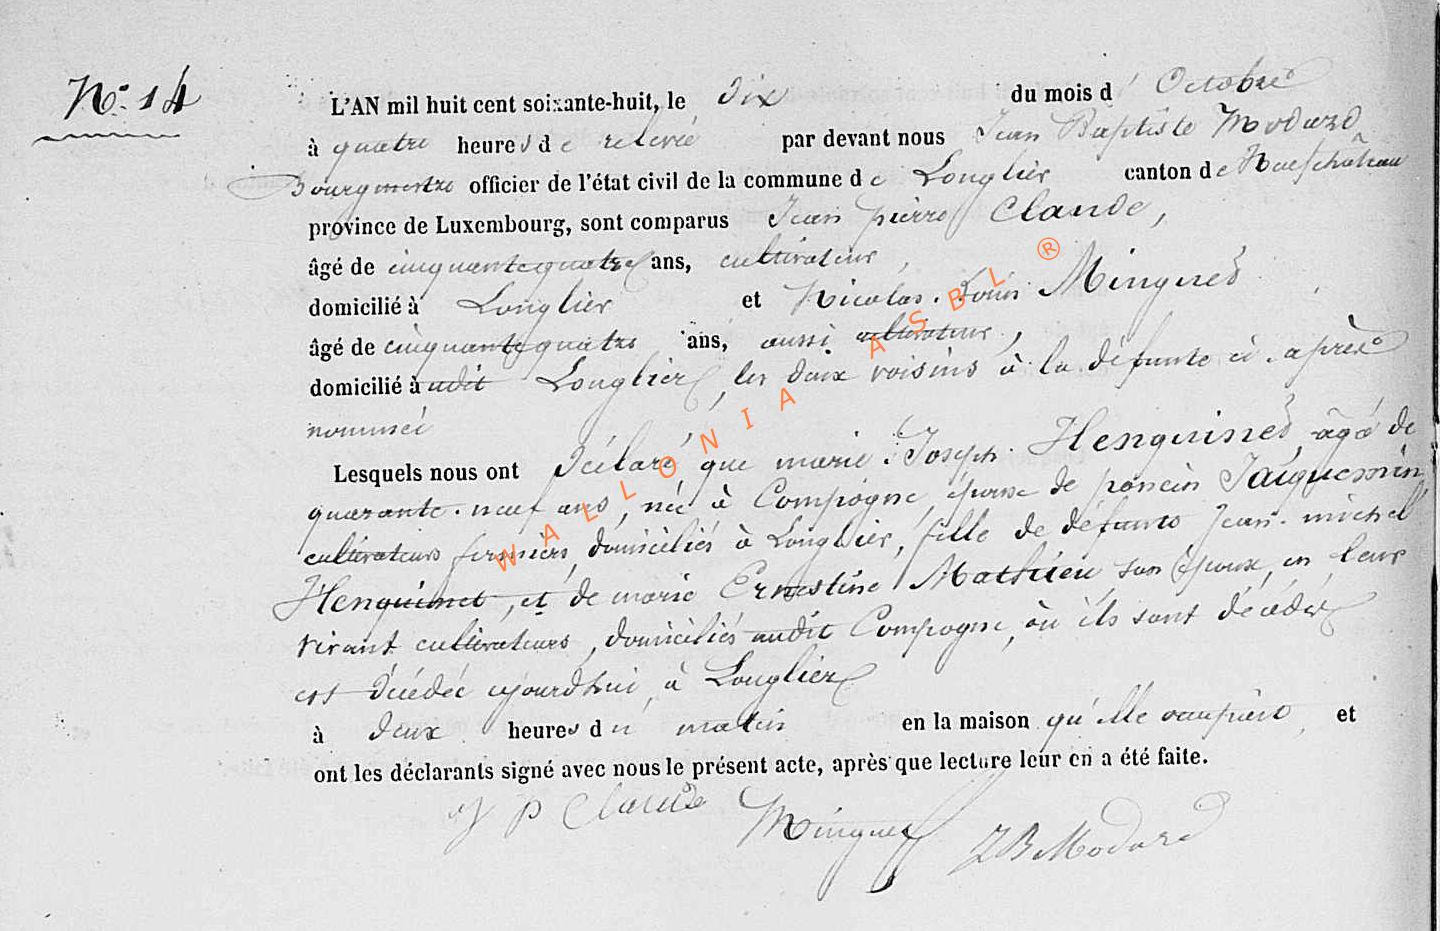 N° 14
L'AN mil huit cent soixante-huit, le dix du mois d' Octobre
à quatre heures de relevée par devant nous Jean Baptiste Modard
Bourgmestre officier de l'état civil de la commune de Longlier canton de Neufchâteau
province de Luxembourg, sont comparus Jean pierre Claude,
âgé de cinquante quatre ans, cultivateur,
domicilié à Longlier et Nicolas Louis Minguet
âgé de cinquante quatre ans, aussi cultivateur,
domicilié à udit Longlier, les deux voisins à la défunte ci-après
nommée
Lesquels nous ont déclaré que marie Joseph Henquinet âgé de
quarante-neuf ans, née à Compogne, épouse de poncin Jacquemin
cultivateurs fermiers, domiciliés à Longlier, fille de défunts Jean-michel
Henquinet, et de marie Ernestine Mathieu, son époux, en leur
vivant cultivateurs, domiciliés audit Compogne, où ils sont décédés
est décédée ajourdhui à Longlier
à deux heures du matin en la maison qu'elle et
ont les déclarants signé avec nous le présent acte, après que lecture leur en a été faite.
J P Claude Minguet JB Modard
WALLONIA ASBL ®